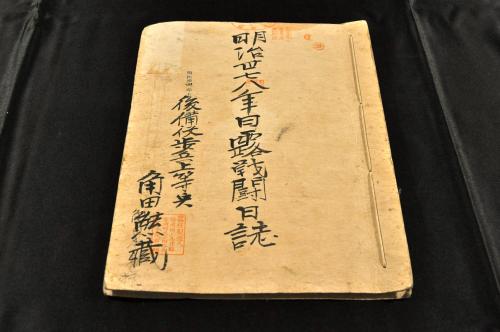 明治四七八年日露戦闘日誌
後備伇歩兵上等兵
角田熊藏